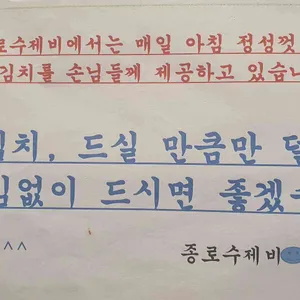 로수제비에서는 매일 아침 정성껏
김치를 손님들께 제공하고 있습니
치, 드실 만큼만 덜
없이 드시면 좋겠
^^
종로수제비